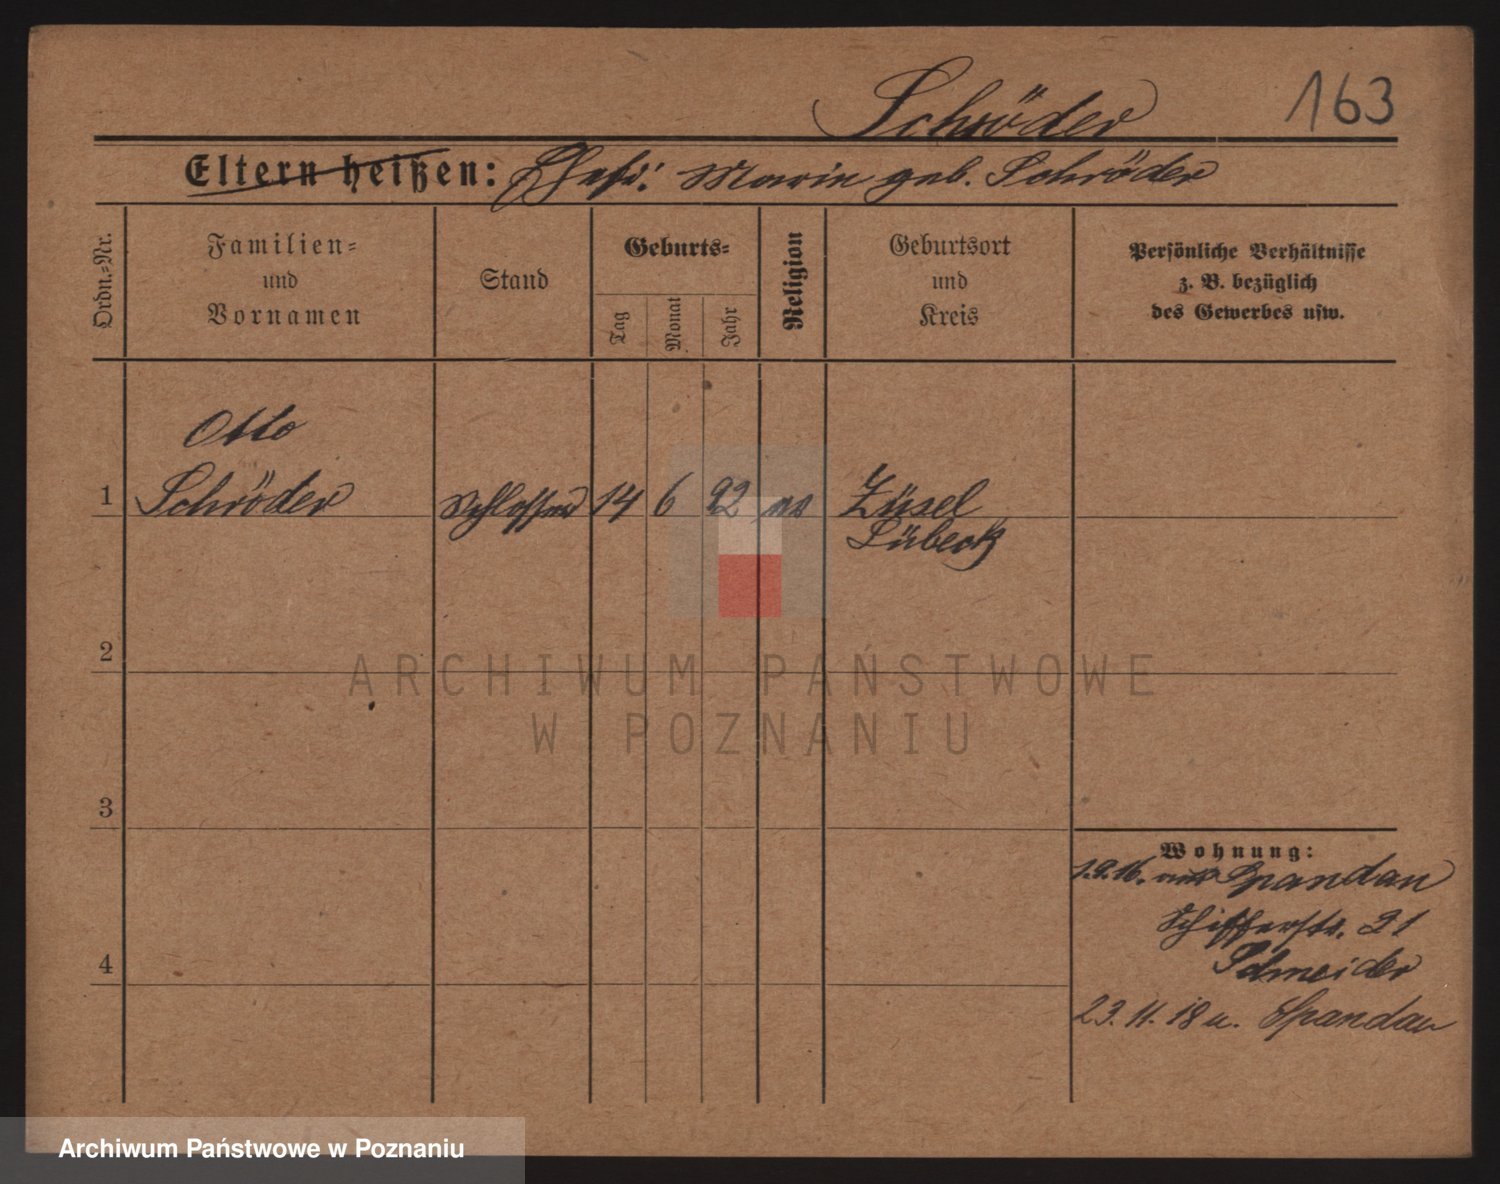 Schröder 163
Eltern heißen: Ehefr: Marie geb. Schröder
Ordn.=Nr.
Familien=
und
Vornamen
Stand
Geburts=
Tag
Monat
Jahr
Religion
Geburtsort
und
Kreis
Persönliche Verhältnisse
z. B. bezüglich
des Gewerbes usw.
Otto
1 Schröder Schlosser 14 6 92 Züsel
Lübeck
2
ARCHIWUM PAŃSTWOWE
W POZNANIU
3
Wohnung:
1.9.16. aus Spandau
Schifferstr. 21
Schneider
4
23. 11. 18 n. Spandau
Archiwum Państwowe w Poznaniu